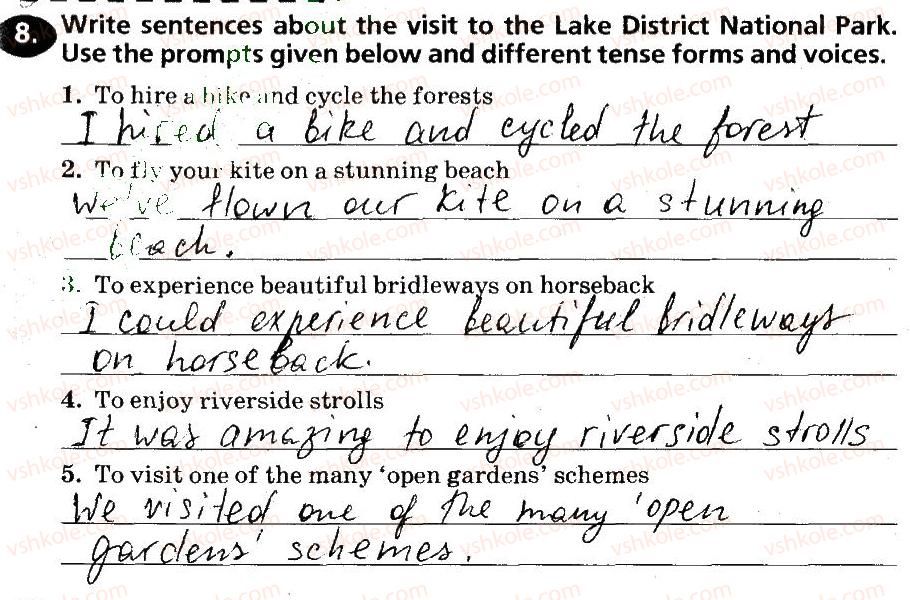 8. Write sentences about the visit to the Lake District National Park.
Use the prompts given below and different tense forms and voices.
1. To hire a bike and cycle the forests
I hired a bike and cycled the forest
2. To fly your kite on a stunning beach
We've flown our kite on a stunning
beach.
3. To experience beautiful bridleways on horseback
I could experience beautiful bridleways
on horseback.
4. To enjoy riverside strolls
It was amazing to enjoy riverside strolls
5. To visit one of the many 'open gardens' schemes
We visited one of the many 'open
gardens' schemes.